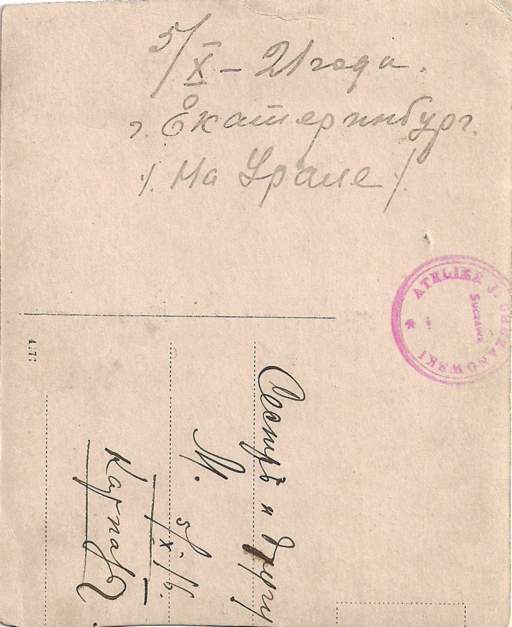 5/X – 21 года.
г. Екатеринбург.
/. На Урале /.
ATELIER J.
SUCZAWA
Сестрѣ и другу
М.
5/X 16.